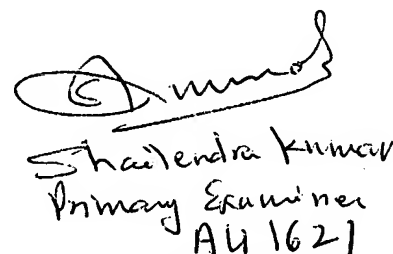 Shailendra Kumar
Primary Examiner
AU 1621